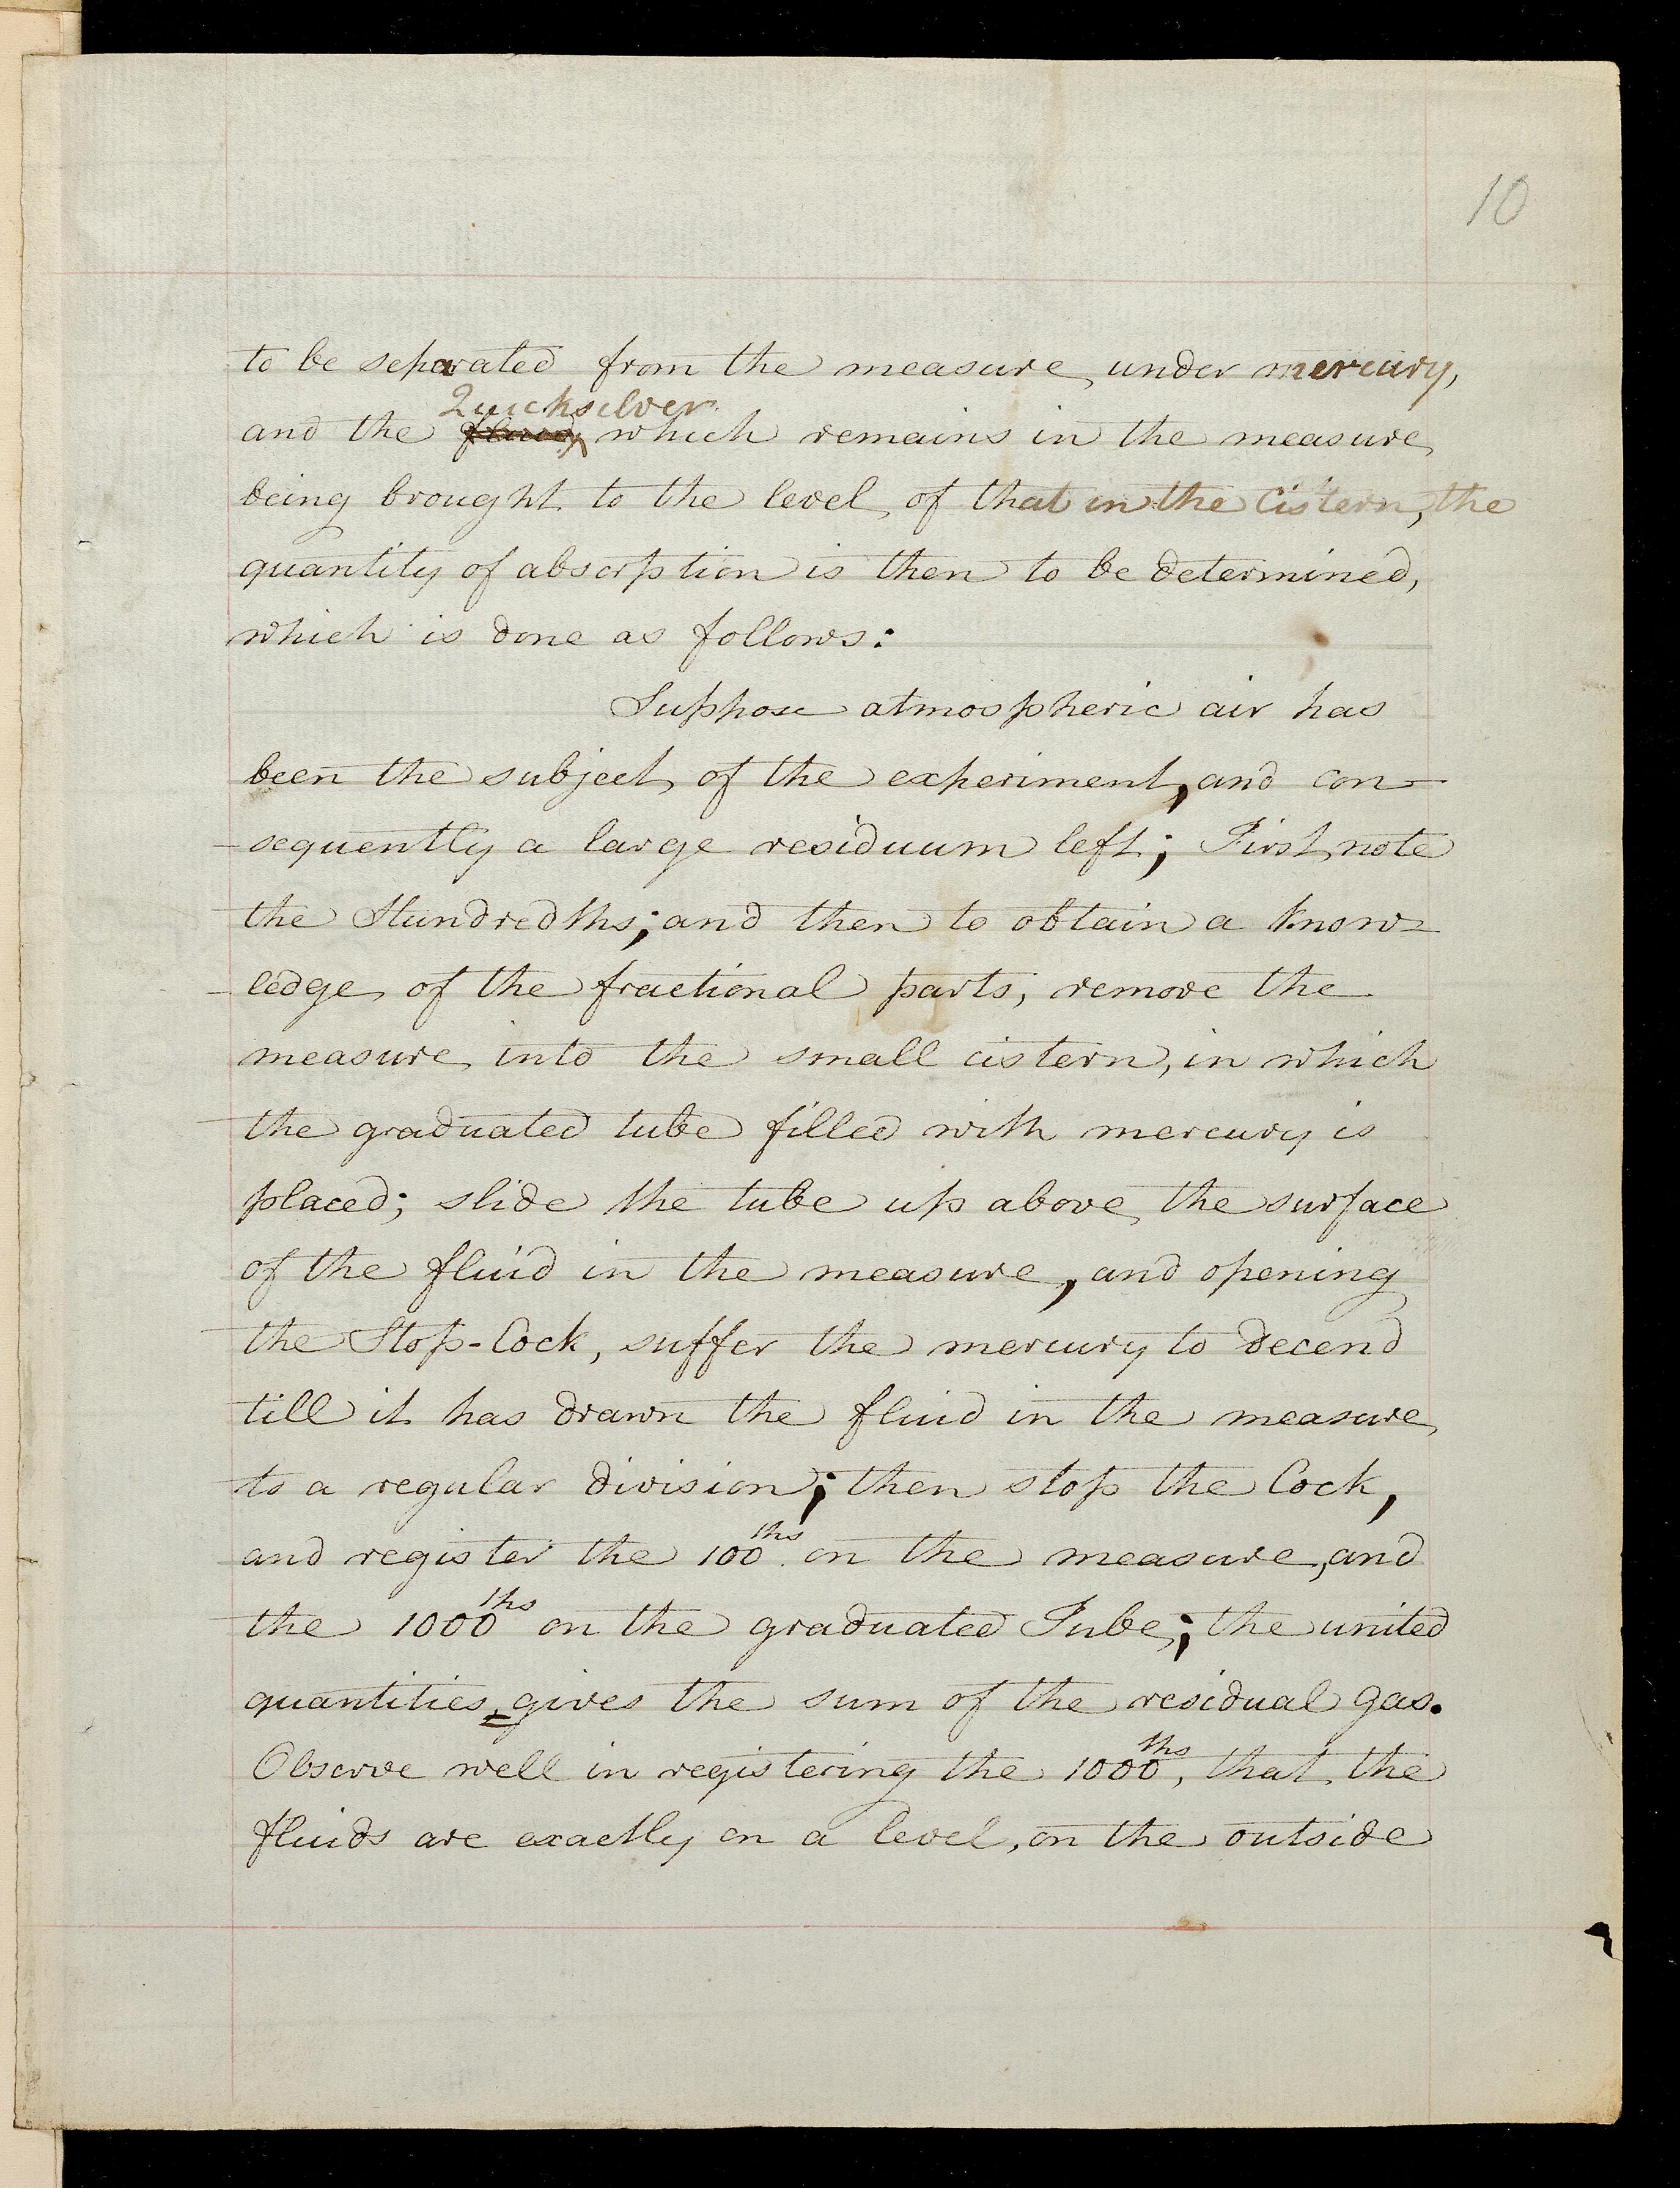 10
to be separated from the measure under mercury,
Quicksilver
and the fluid which remains in the measure
being brought to the level of that in the Cistern, the
quantity of absorption is then to be determined,
which is done as follows:
Suppose atmospheric air has
been the subject of the experiment, and con-
sequently a large residuum left; First note
the Hundredths; and then to obtain a know=
ledge of the fractional parts, remove the
measure into the small cistern, in which
the graduated tube filled with mercury is
placed; slide the tube up above the surface
of the fluid in the measure, and opening
the Stop-Cock, suffer the mercury to decend
till it has drawn the fluid in the measure
to a regular division; then stop the Cock,
and register the 100ths on the measure, and
the 1000ths on the graduated Tube; the united
quantities gives the sum of the residual gas.
Observe well in registering the 1000ths, that the
fluids are exactly on a level, on the outside